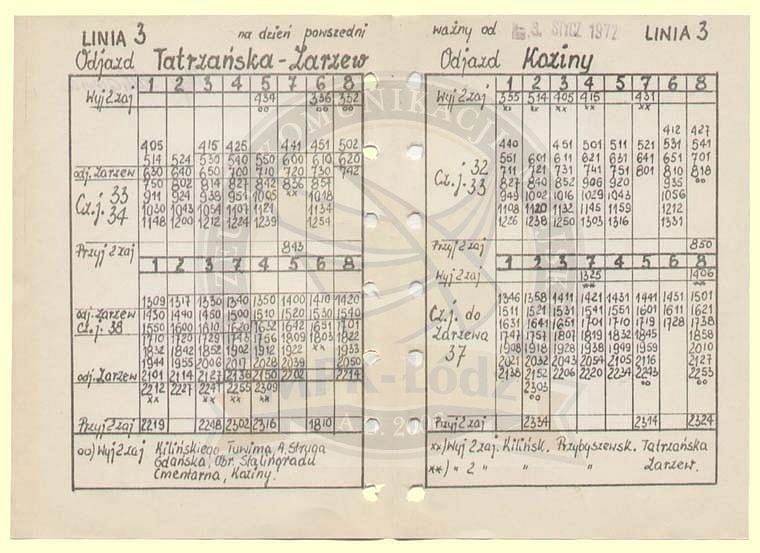 LINIA 3 na dzień powszedni
Odjazd Tatrzańska - Żarzew
1 2 3 4 5 7 6 8
Wyj 2 zaj 434 336 352
oo oo oo
405 415 425 441 451 502
514 524 530 540 550 600 610 620
odj. Żarzew 630 640 650 700 710 720 730 742
750 802 814 827 842 836 857
Cz. j. 33 911 924 938 951 1005 xx 1018
34 1030 1043 1054 1107 1121 1134
1148 1200 1212 1224 1239 1254
Przyj 2 zaj 843
1 2 3 4 5 7 6 8
1309 1317 1330 1340 1350 1400 1410 1420
odj. Żarzew 1430 1440 1450 1500 1510 1520 1530 1540
Cz. j. 38 1550 1600 1610 1620 1632 1642 1651 1701
1710 1720 1729 1743 1756 1809 1803 1822
1832 1842 1852 1902 1912 1922 xx 1933
1944 1955 2006 2017 2028 2039 2050
odj. Żarzew 2101 2114 2127 2136 2150 2202 2214
2212 2227 2241 2255 2309
xx xx xx xx
Przyj 2 zaj 2219 2248 2302 2316 1810
oo) Wyj 2 zaj Kilińskiego, Tuwima, A. Struga
Gdańska, Obr. Stalingradu
Cmentarna, Koziny.
ważny od 3. STYCZ 1972 LINIA 3
Odjazd Koziny
1 2 3 4 5 7 6 8
Wyj 2 zaj 355 514 405 415 431
xx xx xx xx xx
412 427
440 451 501 511 521 531 541
551 601 611 621 631 641 651 701
Cz. j. 32 711 721 731 741 751 801 810 818
33 827 840 852 906 920 935 oo
949 1002 1016 1029 1043 1056
1108 1120 1132 1145 1159 1212
1226 1238 1250 1303 1316 1331
Przyj 2 zaj 850
1 2 3 4 5 7 6 8
Wyj 2 zaj 1325 1406
xx
1346 1358 1411 1421 1431 1441 1451 1501
Cz. j. do 1511 1521 1531 1541 1551 1601 1611 1621
Żarzewa 1631 1641 1651 1701 1710 1719 1728 1738
37 1747 1757 1807 1819 1832 1845 1858
1908 1918 1928 1938 1949 1959 2010
2021 2032 2043 2054 2105 2116 2127
2138 2152 2206 2220 2234 2243 2253
2303 oo oo
oo
Przyj 2 zaj 2334 2314 2324
xx) Wyj 2 zaj. Kilińsk. Przybyszewsk. Tatrzańska
xx) " 2 " " Żarzew.
MPK-Łódź